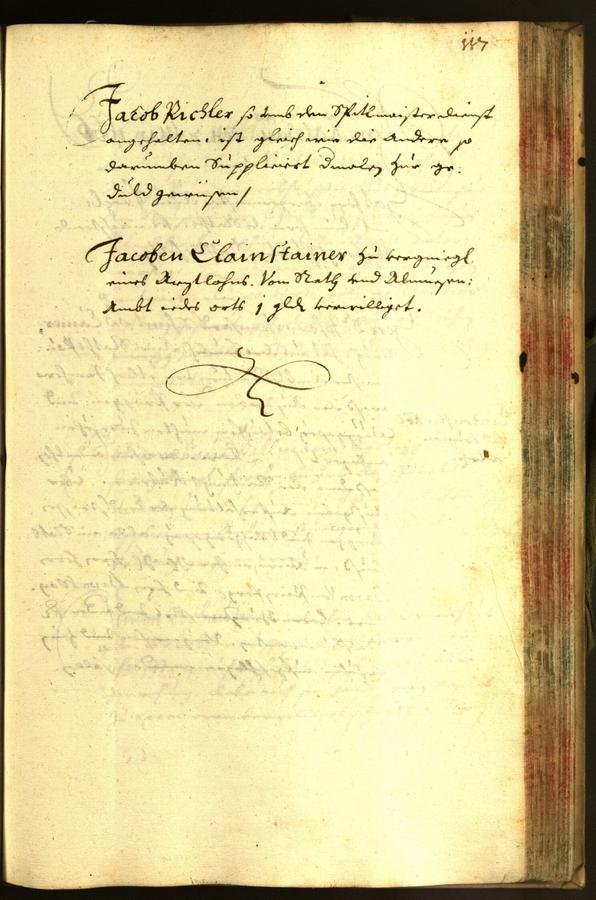 117
Jacob Richler so umb den Spitlmaisterdienst
angehalten, ist gleich wie die Andere so
darumben Suppliciert dmalen zur ge:
duld gewisen /
Jacoben Clainstainer zu vergnieg
eines Arztlohns. Vom Rath und Almuesen:
Ambt iedes orts 1 gld verwilliget.